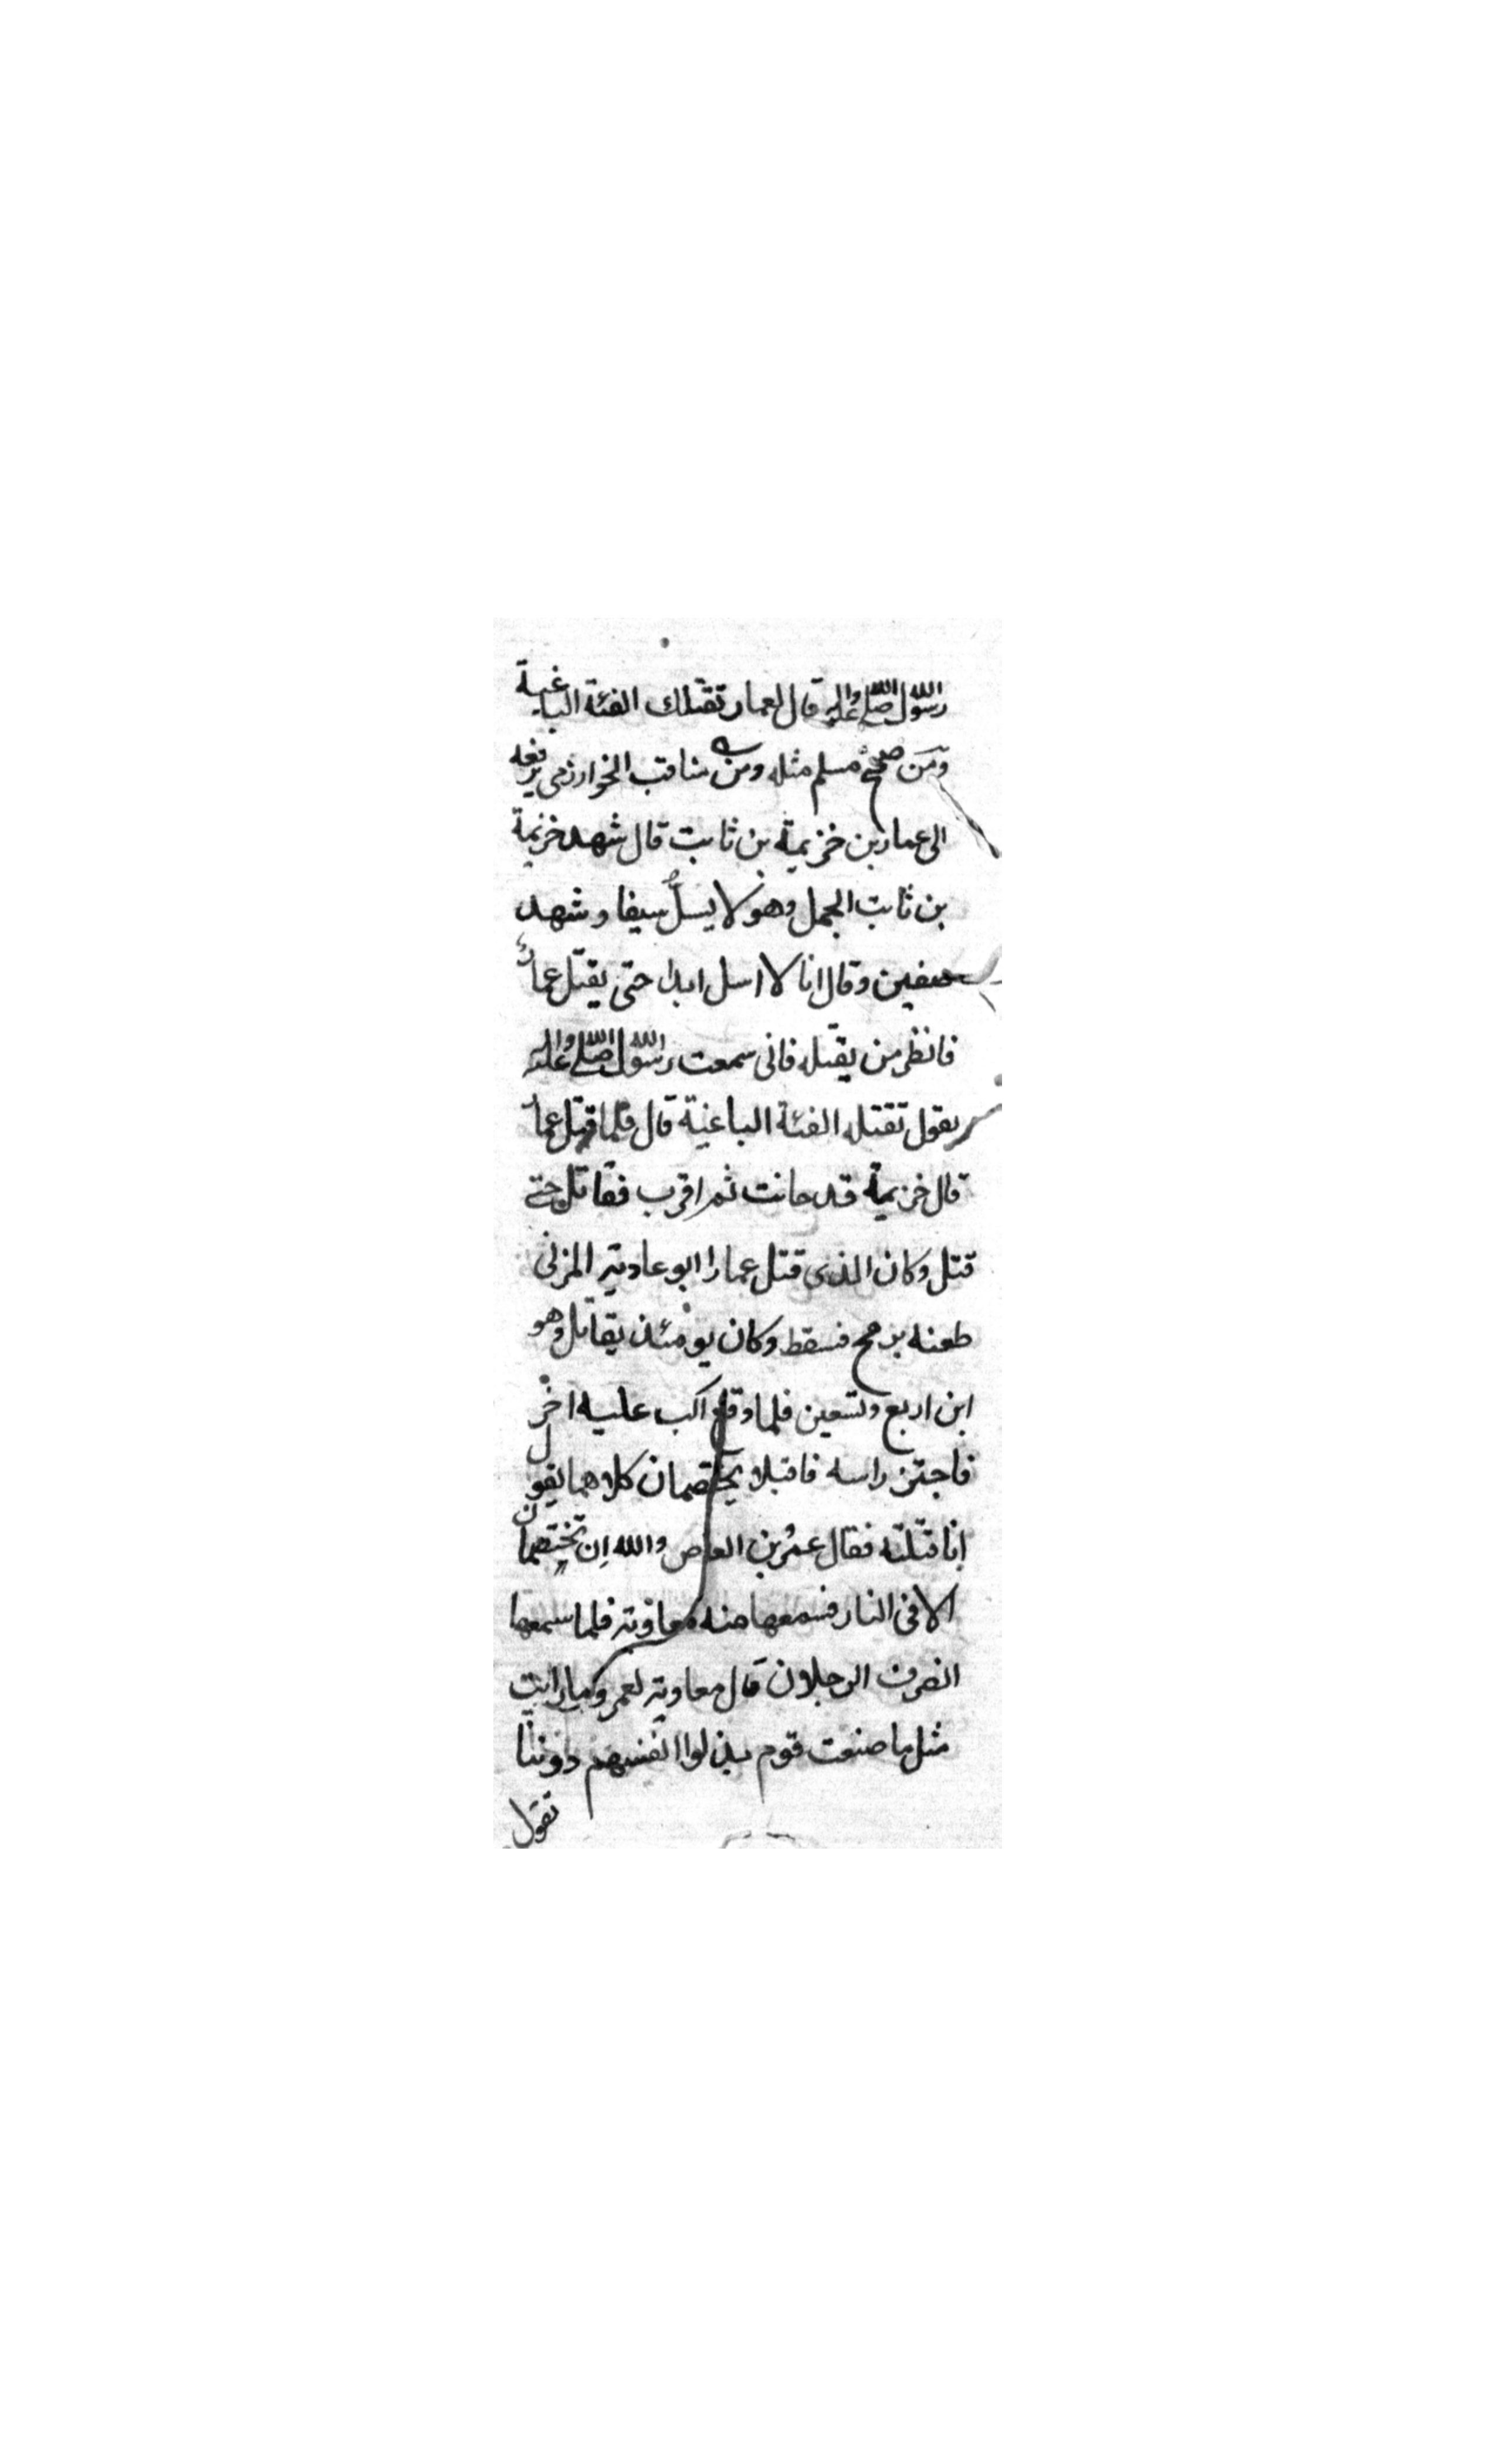 رسول الله صلى الله عليه واله قال لعمار تقتلك الفئة الباغية
ومن صحيح مسلم مثله ومن مناقب الخوارزمى يرفعه
الى عمار بن خزيمة بن ثابت قال شهد خزيمة
بن ثابت الجمل وهو لا يسلّ سيفا وشهد
صفين وقال انا لا اسل ابدا حتى يقتل عمار
فانظر من يقتله فانى سمعت رسول الله صلى الله عليه واله
يقول تقتله الفئة الباغية قال فلما قتل عمار
قال خزيمة قد حانت ثم اقرب فقاتل حتى
قتل وكان الذى قتل عمارا ابو عادية المزنى
طعنه برمح فسقط وكان يومئذ يقاتل وهو
ابن اربع وتسعين فلما وقع اكب عليه اخر
فاجتز راسه فاقبلا يختصمان كلاهما يقول
انا قتلته فقال عمرو بن العاص والله اِن تختصمان
الا فى النار فسمعها منه معاوية فلما سمعها
انصرف الرجلان قال معاوية لعمرو ما رايت
مثل ما صنعت قوم بذلوا انفسهم دوننا
تقول